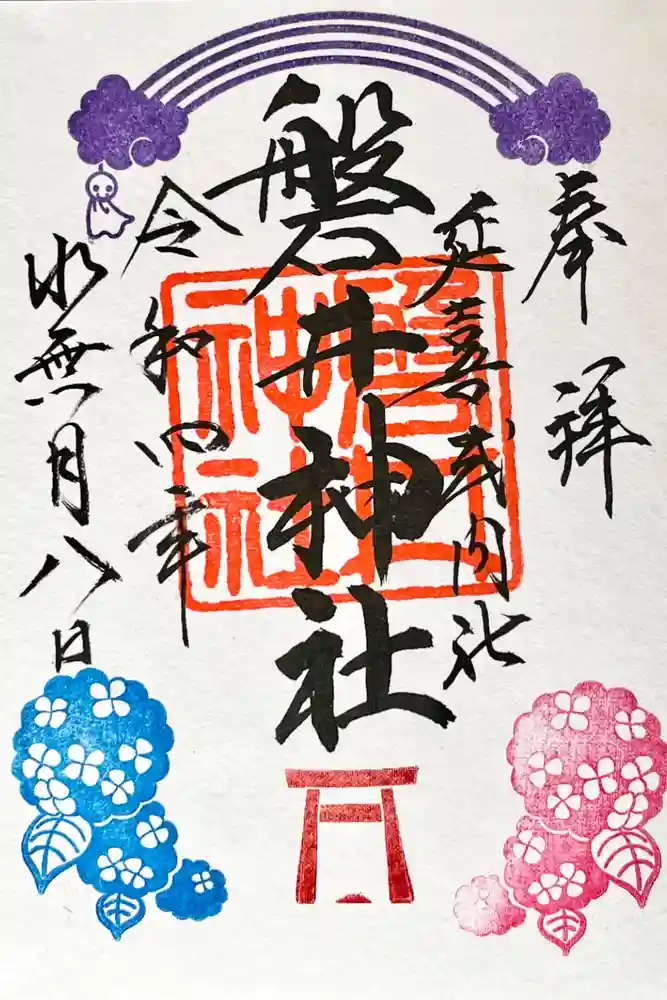 奉拝
延喜式内社
磐井神社
令和四年
水無月八日